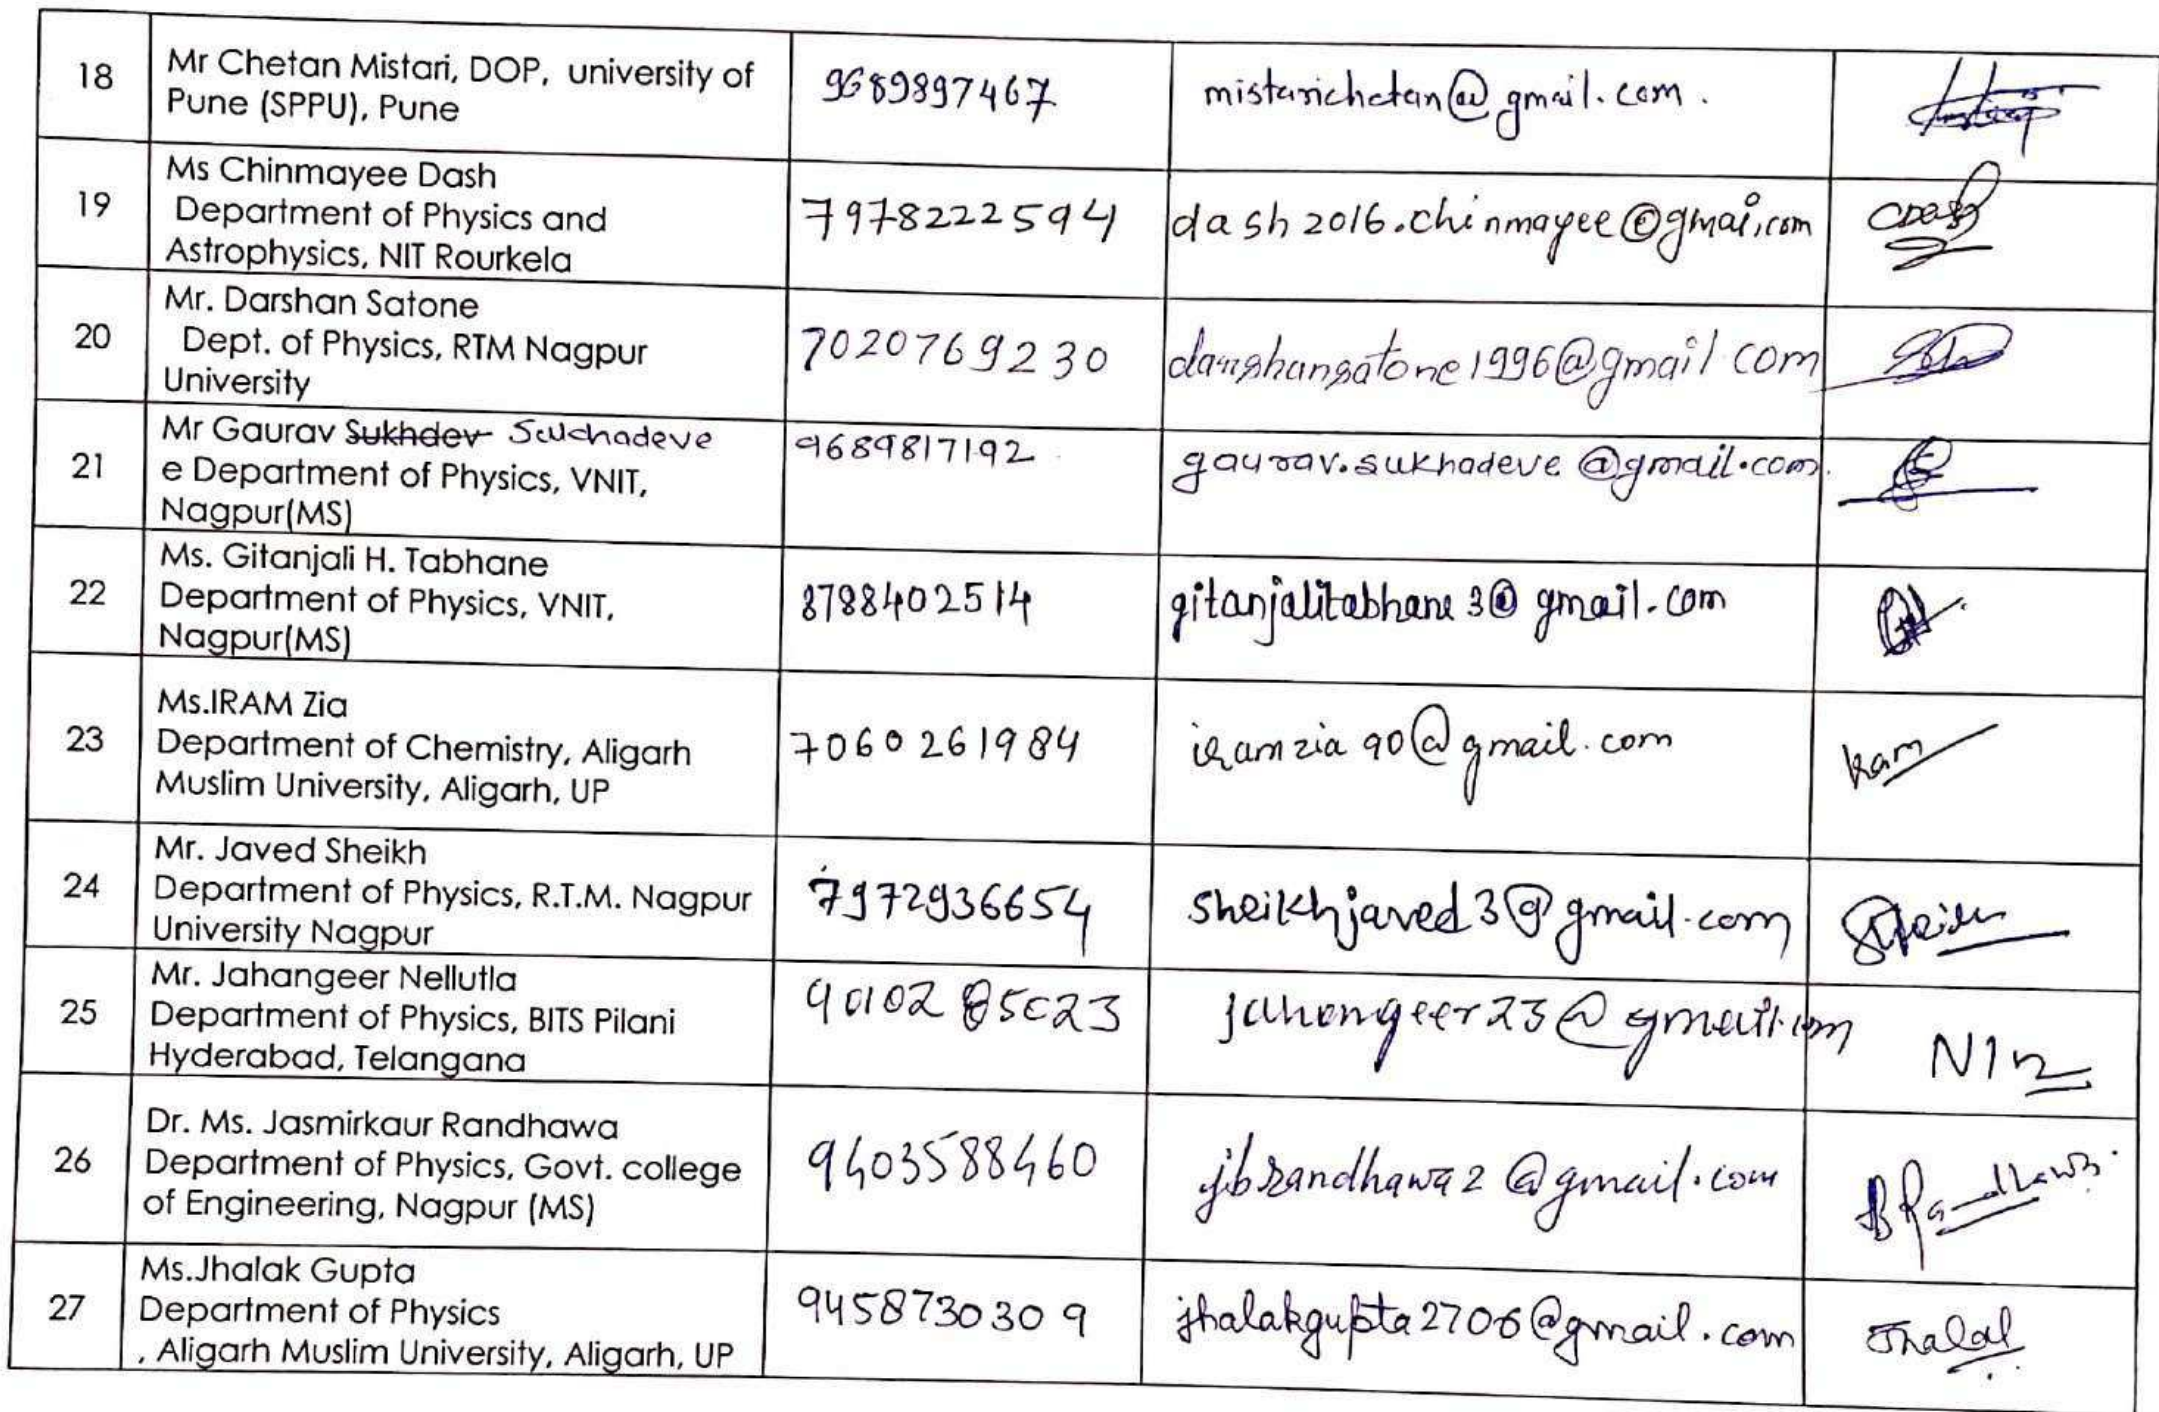 18
Mr Chetan Mistari, DOP, university of
Pune (SPPU), Pune
9689897467
mistarichetan@gmail.com.
19
Ms Chinmayee Dash
Department of Physics and
Astrophysics, NIT Rourkela
7978222594
dash2016.chinmayee@gmai.com
CDash
20
Mr. Darshan Satone
Dept. of Physics, RTM Nagpur
University
7020769230
darshansatone1996@gmail.com
21
Mr Gaurav Sukhdev Sukhadeve
e Department of Physics, VNIT,
Nagpur(MS)
9689817192
gaurav.sukhadeve@gmail.com.
22
Ms. Gitanjali H. Tabhane
Department of Physics, VNIT,
Nagpur(MS)
8788402514
gitanjalitabhane3@gmail.com
23
Ms.IRAM Zia
Department of Chemistry, Aligarh
Muslim University, Aligarh, UP
7060261984
iramzia90@gmail.com
Iram
24
Mr. Javed Sheikh
Department of Physics, R.T.M. Nagpur
University Nagpur
7972936654
sheikhjaved3@gmail.com
25
Mr. Jahangeer Nellutla
Department of Physics, BITS Pilani
Hyderabad, Telangana
9010285023
jahangeer23@gmail.com
26
Dr. Ms. Jasmirkaur Randhawa
Department of Physics, Govt. college
of Engineering, Nagpur (MS)
9403588460
jbrandhawa2@gmail.com
BRandhawa
27
Ms.Jhalak Gupta
Department of Physics
, Aligarh Muslim University, Aligarh, UP
9458730309
jhalakgupta2706@gmail.com
Jhalak